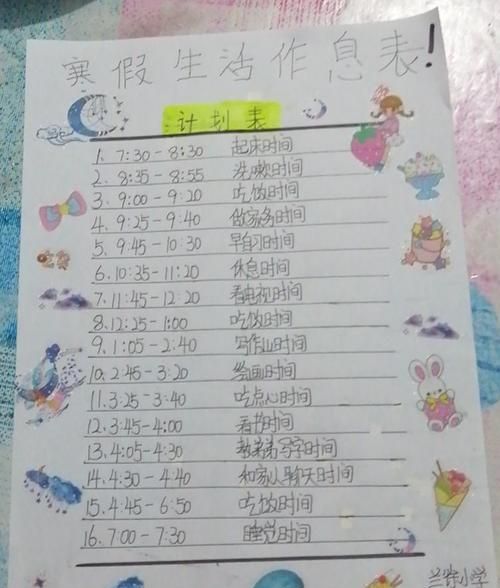 寒假生活作息表!
计划表
1. 7:30-8:30 起床时间
2. 8:35-8:55 洗漱时间
3. 9:00-9:20 吃饭时间
4. 9:25-9:40 做家务时间
5. 9:45-10:30 早自习时间
6. 10:35-11:20 休息时间
7. 11:45-12:20 看电视时间
8. 12:25-1:00 吃饭时间
9. 1:05-2:40 写作业时间
10. 2:45-3:20 绘画时间
11. 3:25-3:40 吃点心时间
12. 3:45-4:00 看书时间
13. 4:05-4:30 教弟弟写字时间
14. 4:30-4:40 和家人聊天时间
15. 4:45-6:50 吃饭时间
16. 7:00-7:30 睡觉时间
小学